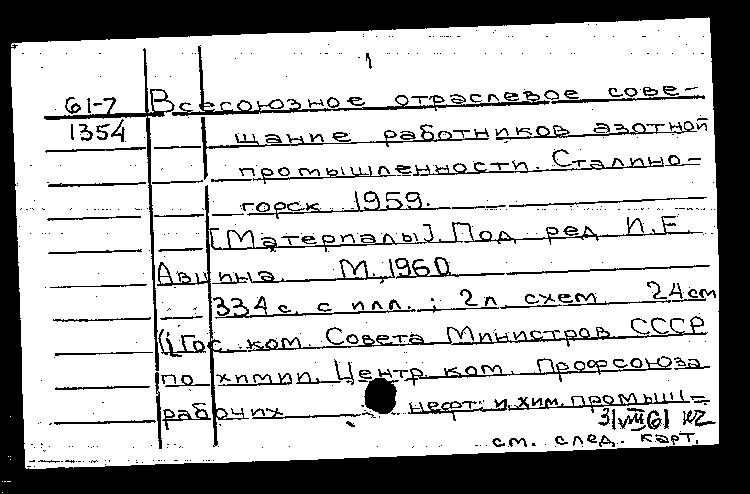 1
61-7 Всесоюзное отраслевое сове-
1354 щание работников азотной
промышленности. Сталино-
горск 1959.
[Материалы]. Под ред И.Е.
М., 1960
334 с. с илл. ; 2 л. схем 24 см
(Гос. ком. Совета Министров СССР
по химии. Центр ком. Профсоюза
рабочих нефт. и хим. промыш=
31 VIII 61
см. след. карт.